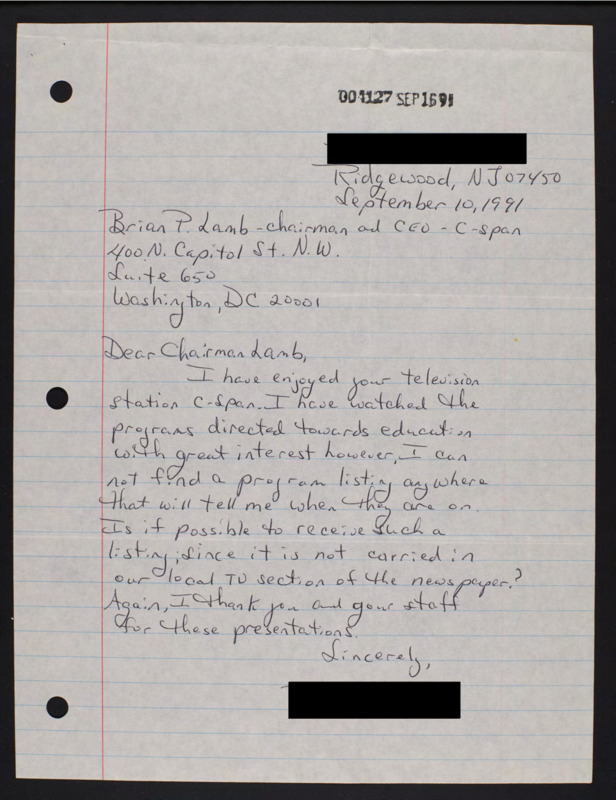 004127 SEP 16 91
Ridgewood, NJ 07450
September 10, 1991
Brian P. Lamb - chairman ad CEO - C-span
400 N. Capitol St. N.W.
Suite 650
Washington, DC 20001
Dear Chairman Lamb,
I have enjoyed your television
station C-span. I have watched the
programs directed towards education
with great interest however, I can
not find a program listing anywhere
that will tell me when they are on.
Is it possible to receive such a
listing; since it is not carried in
our local TV section of the newspaper?
Again, I thank you and your staff
for these presentations.
Sincerely,